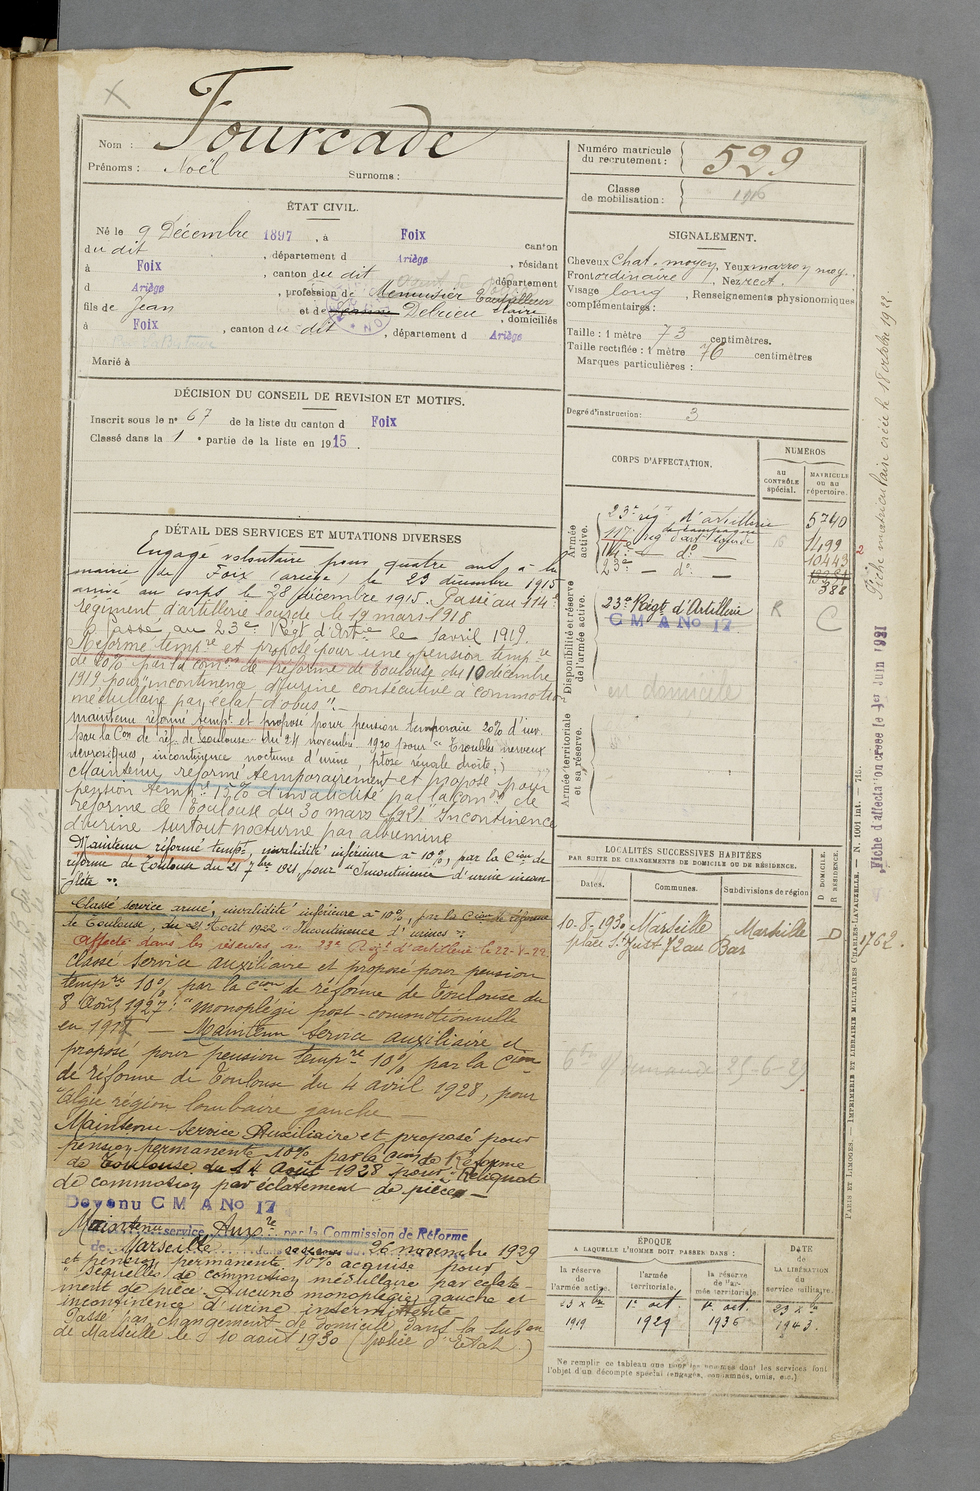 Nom : Fourcade
Prénoms : Noël Surnoms :
Numéro matricule du recrutement : 529
Classe de mobilisation : 1916
ÉTAT CIVIL.
Né le 9 Décembre 1897, à Foix canton
du dit, département d Ariège, résidant
à Foix, canton du dit, département
d Ariège, profession de Menuisier
fils de Jean et de Delrieu Claire, domiciliés
à Foix, canton du dit, département d Ariège
Marié à
SIGNALEMENT.
Cheveux chat. moyen, Yeux marron moy.
Front ordinaire, Nez rect.
Visage long, Renseignements physionomiques
complémentaires :
Taille : 1 mètre 73 centimètres.
Taille rectifiée : 1 mètre 76 centimètres
Marques particulières :
Degré d'instruction : 3
DÉCISION DU CONSEIL DE REVISION ET MOTIFS.
Inscrit sous le n° 67 de la liste du canton d Foix
Classé dans la 1 e partie de la liste en 1915.
DÉTAIL DES SERVICES ET MUTATIONS DIVERSES
Engagé volontaire pour quatre ans à la
mairie de Foix (ariège) le 23 décembre 1915
arrivé au corps le 28 décembre 1915. Passé au 114e
régiment d'artillerie lourde le 19 mars 1918
Passé au 23e Regt d'Artie le 1 avril 1919.
Réformé tempre et proposé pour une pension tempre
de 20% par la Comon de réforme de Toulouse du 10 décembre
1919 pour "incontinence d'urine consécutive à commotion
médullaire par éclat d'obus".
Maintenu réformé tempt et proposé pour pension temporaire 20% d'inv.
par la Con de réf. de Toulouse du 24 novembre 1920 pour "Troubles nerveux
névrosiques, incontinence nocturne d'urine, ptose rénale droite."
Maintenu réformé temporairement et proposé pour
pension tempre 15% d'invalidité par la Comon de
réforme de Toulouse du 30 mars 1921 "Incontinence
d'urine surtout nocturne pas albumine
Maintenu réformé tempt, invalidité inférieure à 10%, par la Cion de
réforme de Toulouse du 21 7bre 1921, pour "Incontinence d'urine incom-
plète".
Classé service armé, invalidité inférieure à 10%, par la Cion de réforme
de Toulouse, du 21 Août 1922 "Incontinence d'urines"
Affecté dans les réserves au 23e Régt d'artillerie le 22-8-22.
Classé service auxiliaire et proposé pour pension
tempre 10%, par la Cion de réforme de Toulouse du
8 Août 1927 : "monoplégie post-commotionnelle
en 1917 — Maintenu service auxiliaire et
proposé pour pension tempre 10% par la Cion
de réforme de Toulouse du 4 avril 1928, pour
algie région lombaire gauche
Maintenu Service Auxiliaire et proposé pour
pension permanente 10% par la Con de Réforme
de Toulouse du 14 Août 1928 pour "Reliquat
de commotion par éclatement de pièce —
Devenu C M A No 17
Maintenu service Auxre par la Commission de Réforme
de Marseille du 26 novembre 1929
et pension permanente 10% acquise pour
"séquelles de commotion médullaire par éclate-
ment de pièce. Aucune monoplégie gauche et
incontinence d'urine intermittente
Passé par changement de domicile dans la subon
de Marseille le 10 août 1930 (police d'Etat)
CORPS D'AFFECTATION.
NUMÉROS
au CONTRÔLE spécial.
MATRICULE ou au répertoire.
Armée active.
23e regt d'artillerie de campagne 5740
117e reg d'art lourde 16 1499
114e — do — 10443
23e — do — 388
Disponibilité et réserve de l'armée active.
23e Régt d'Artillerie R C
C M A No 17
en domicile
Armée territoriale et sa réserve.
LOCALITÉS SUCCESSIVES HABITÉES
PAR SUITE DE CHANGEMENTS DE DOMICILE OU DE RÉSIDENCE.
Dates. Communes. Subdivisions de région D DOMICILE. R RÉSIDENCE.
10-8-1930 Marseille Marseille D 1762.
place St Just 72 au Bar
25-6-29
ÉPOQUE
A LAQUELLE L'HOMME DOIT PASSER DANS :
la réserve de l'armée active. l'armée territoriale. la réserve de l'armée territoriale.
DATE de LA LIBÉRATION du service militaire.
23 Xbre 1919
1er oct. 1929
1er oct. 1936
23 Xbre 1943.
Ne remplir ce tableau que pour les hommes dont les services font
l'objet d'un décompte spécial (engagés, condamnés, omis, etc.)
PARIS ET LIMOGES. — IMPRIMERIE ET LIBRAIRIE MILITAIRES CHARLES-LAVAUZELLE. — N. 1001 int. — 715.
Fiche d'affectation créée le 1er Juin 1921
Fiche matriculaire créée le 18 octobre 1922.